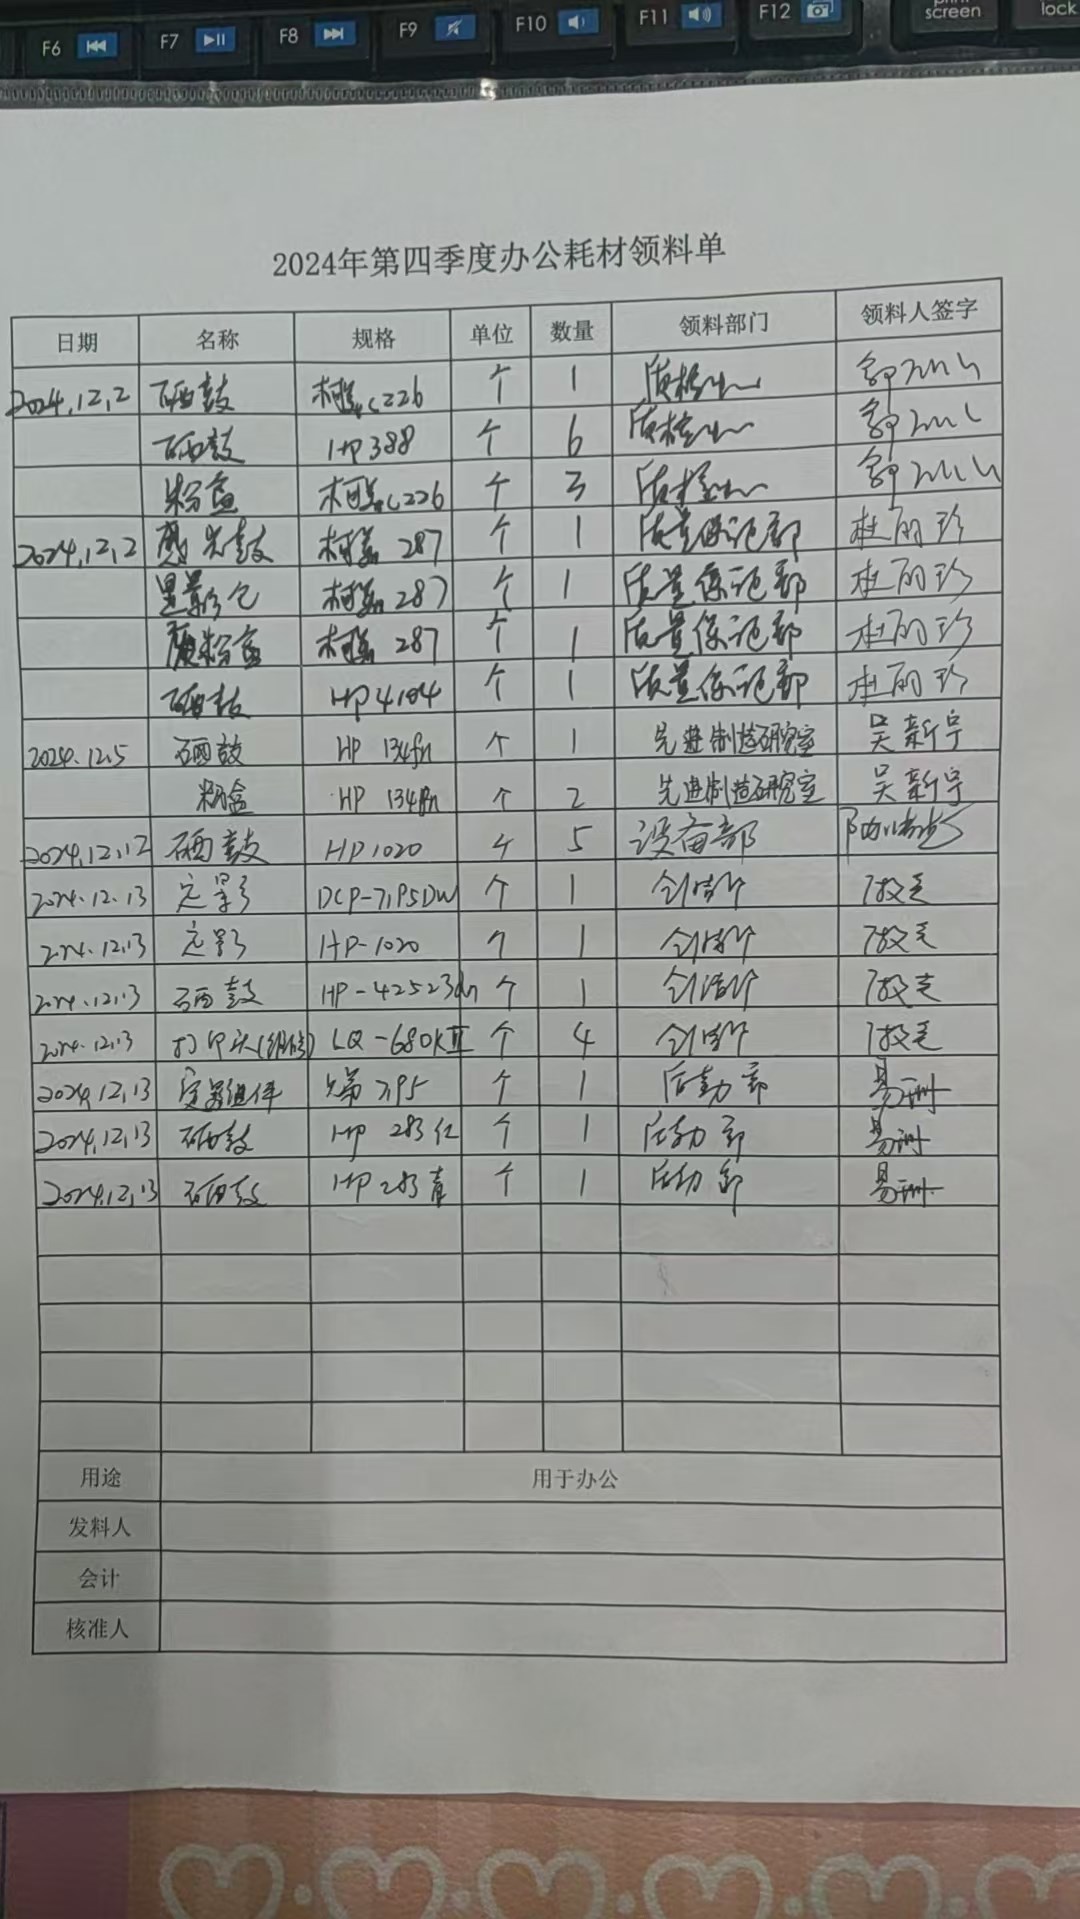 F6 F7 F8 F9 F10 F11 F12 screen lock
2024年第四季度办公耗材领料单
日期 名称 规格 单位 数量 领料部门 领料人签字
2024.12.2 硒鼓 柯美C226 个 1 质检中心
硒鼓 HP388 个 6 质检中心
粉盒 柯美C226 个 3 质检中心
2024.12.2 感光鼓 柯美 287 个 1 质量保证部 杜丽珍
柯美 287 个 1 质量保证部 杜丽珍
粉盒 柯美 287 个 1 质量保证部 杜丽珍
硒鼓 HP4104 个 1 质量保证部 杜丽珍
2024.12.5 硒鼓 HP 134fn 个 1 先进制造研究室 吴新宇
粉盒 HP 134fn 个 2 先进制造研究室 吴新宇
2024.12.12 硒鼓 HP1020 个 5 设备部
2024.12.13 定影 DCP-7195DW 个 1
2024.12.13 定影 HP-1020 个 1
2024.12.13 硒鼓 个 1
2024.12.13 打印头(维修) LQ-680KII 个 4
2024.12.13 定影组件 兄弟 7195 个 1 后勤部
2024.12.13 硒鼓 HP 283 红 个 1 后勤部
2024.12.13 硒鼓 HP 283 青 个 1 后勤部
用途 用于办公
发料人
会计
核准人